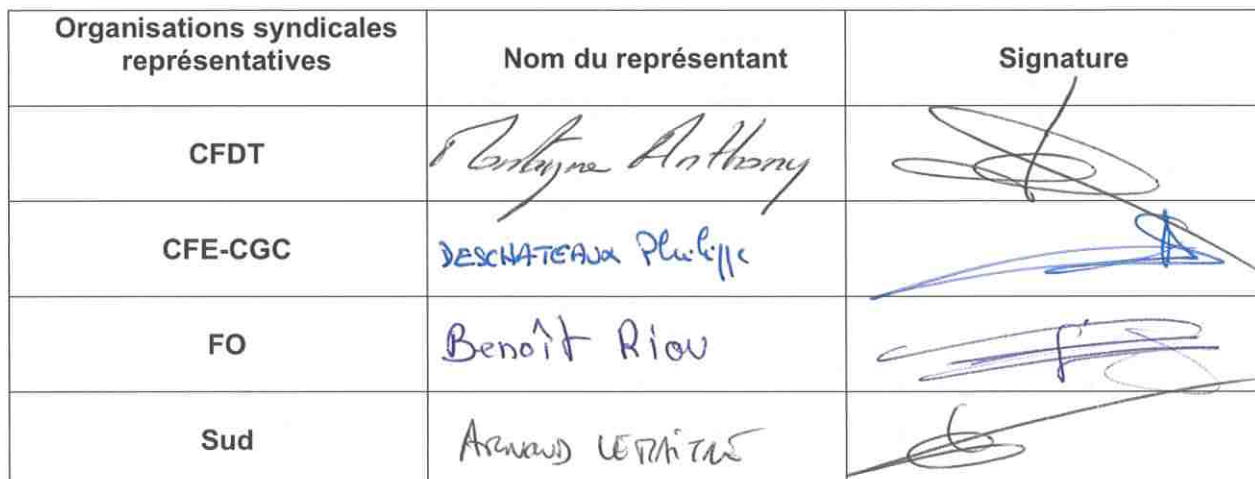 Organisations syndicales
représentatives
Nom du représentant
Signature
CFDT
Montagne Anthony
CFE-CGC
DESCHATEAUX Philippe
FO
Benoît Riou
Sud
Arnaud LEMAÎTRE